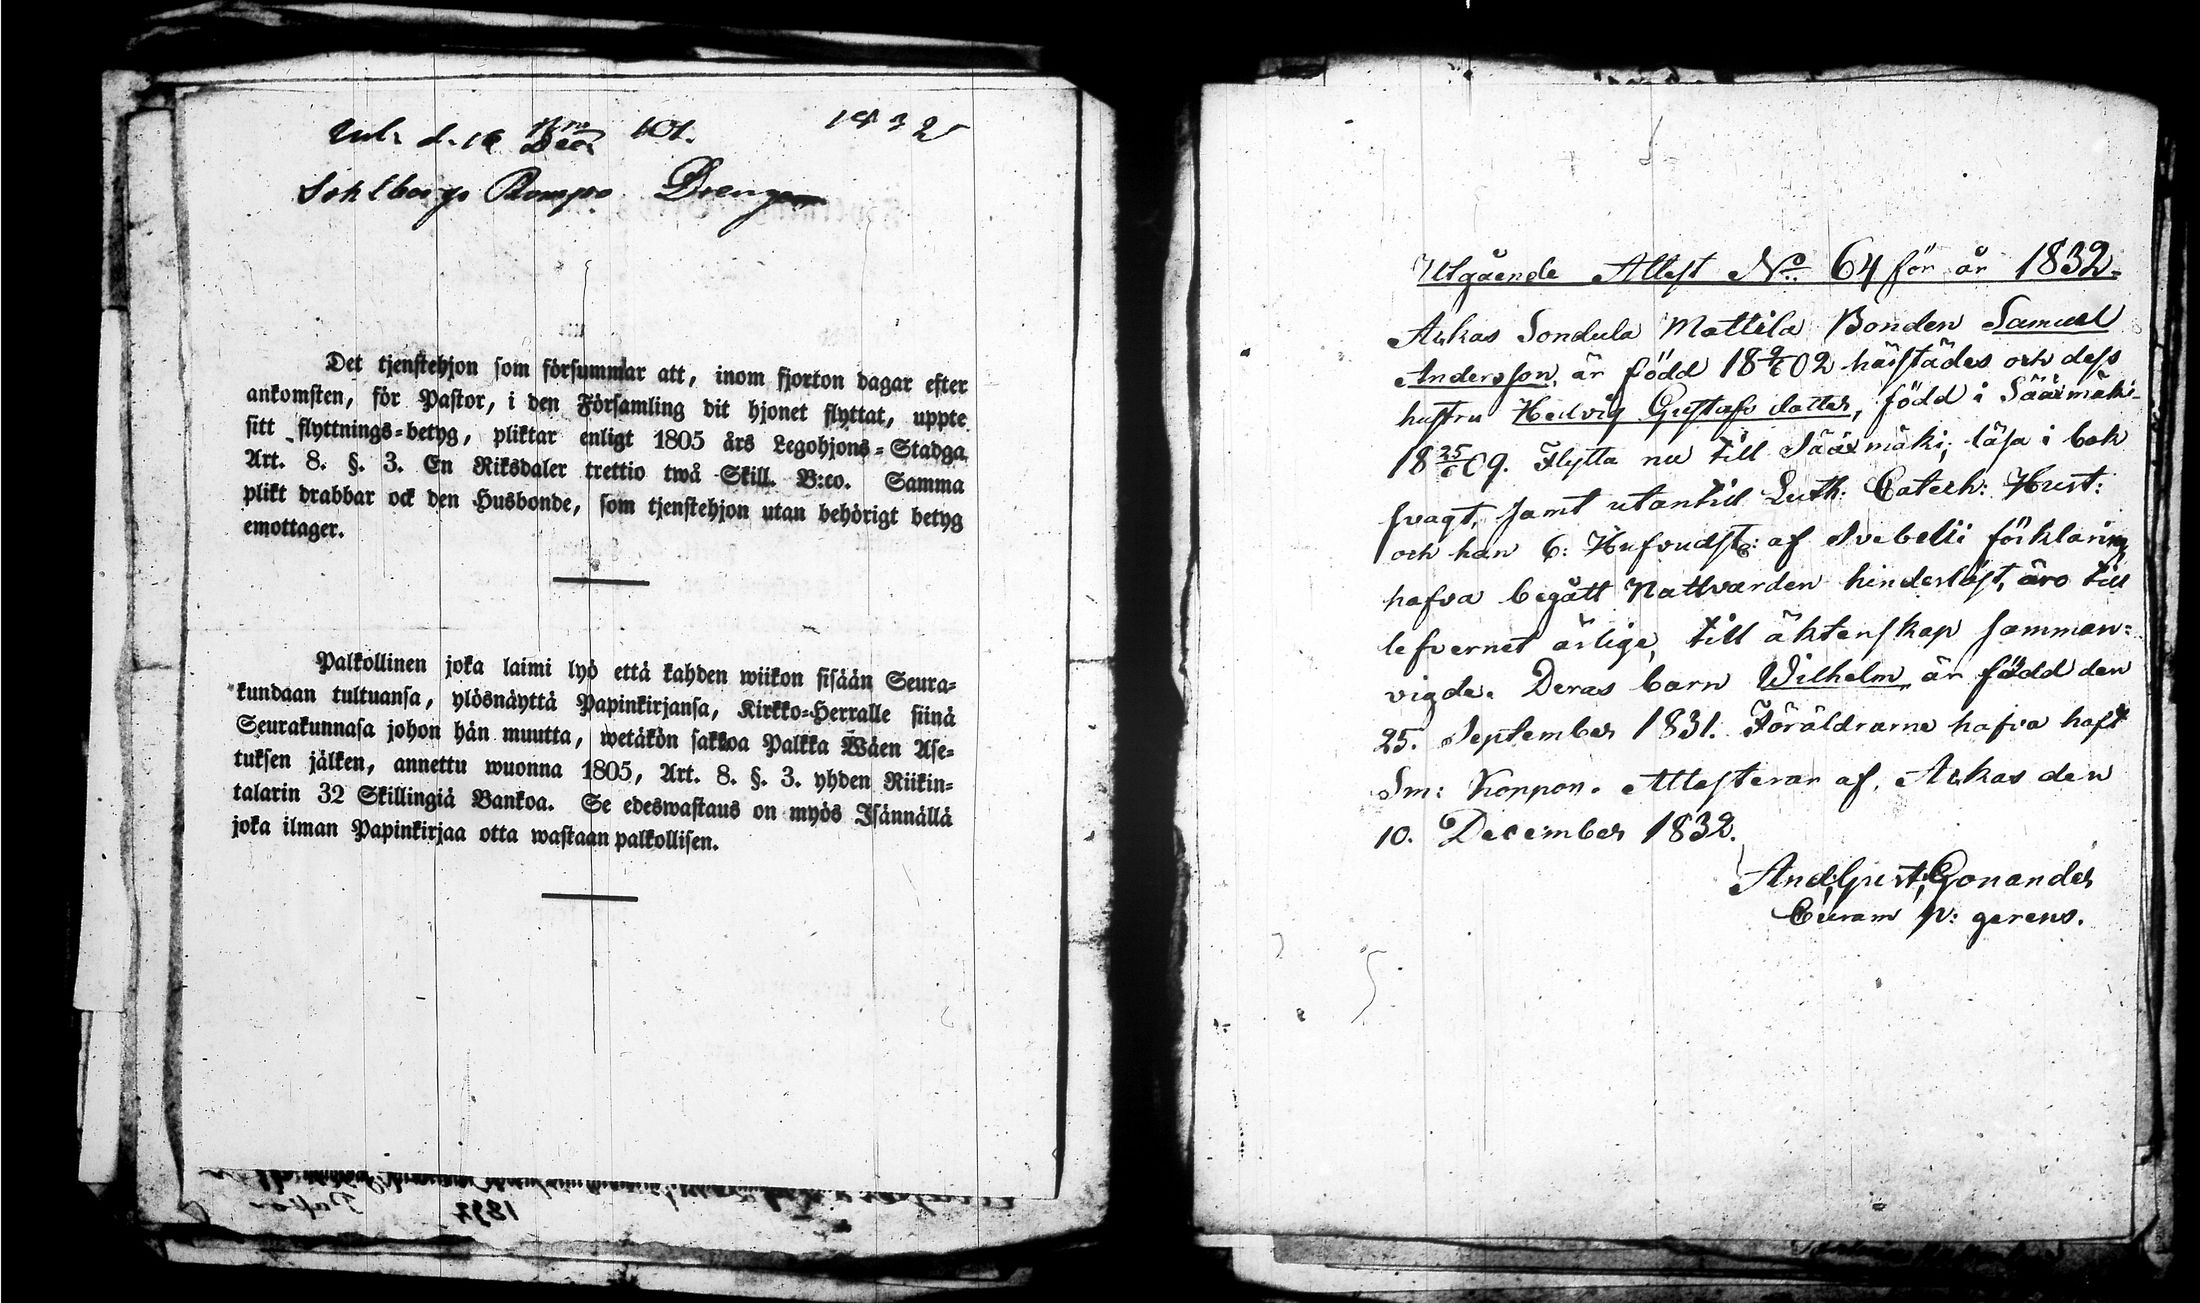 d. 16 Dec. 101. 1832
Sohlbergs Rompo Dreng
Det tjenstehjon som försummar att, inom fjorton dagar efter
ankomsten, för Pastor, i den Församling dit hjonet flyttat, uppte
sitt flyttnings=betyg, pliktar enligt 1805 års Legohjons=Stadga
Art. 8. §. 3. En Riksdaler trettio twå Skill. B:co. Samma
plikt drabbar ock den Husbonde, som tjenstehjon utan behörigt betyg
emottager.
Palkollinen joka laimi lyö että kahden wiikon sisään Seura=
kundaan tultuansa, ylösnäyttä Papinkirjansa, Kirkko=Herralle siinä
Seurakunnasa johon hän muutta, wetäkön sakkoa Palkka Wäen Ase=
tuksen jälken, annettu wuonna 1805, Art. 8. §. 3. yhden Riikin=
talarin 32 Skillingiä Bankoa. Se edeswastaus on myös Isännällä
joka ilman Papinkirjaa otta wastaan palkollisen.
1832
Utgående Attest No. 64 för år 1832.
Ackas Sondula Mattila Bonden Samuel
Andersson, är född 18 02 härstädes och dess
hustru Hedvig Gustafsdotter, född i Sääxmäki
18 25/6 09. Flytta nu till Sääxmäki; läsa i bok
svagt, samt utantill Luth: Catech: Hust:
och han 6: Hufvudst: af Svebelii förklaring
hafva begått Nattvarden hinderlöst, äro till
lefvernet ärlige, till äktenskap samman=
vigde. Deras barn Wilhelm är född den
25. September 1831. Föräldrarne hafva haft
Sm: Koppor. Attesterar af. Ackas den
10. December 1832.
And. Gust. Gonander
Curam p: gerens.